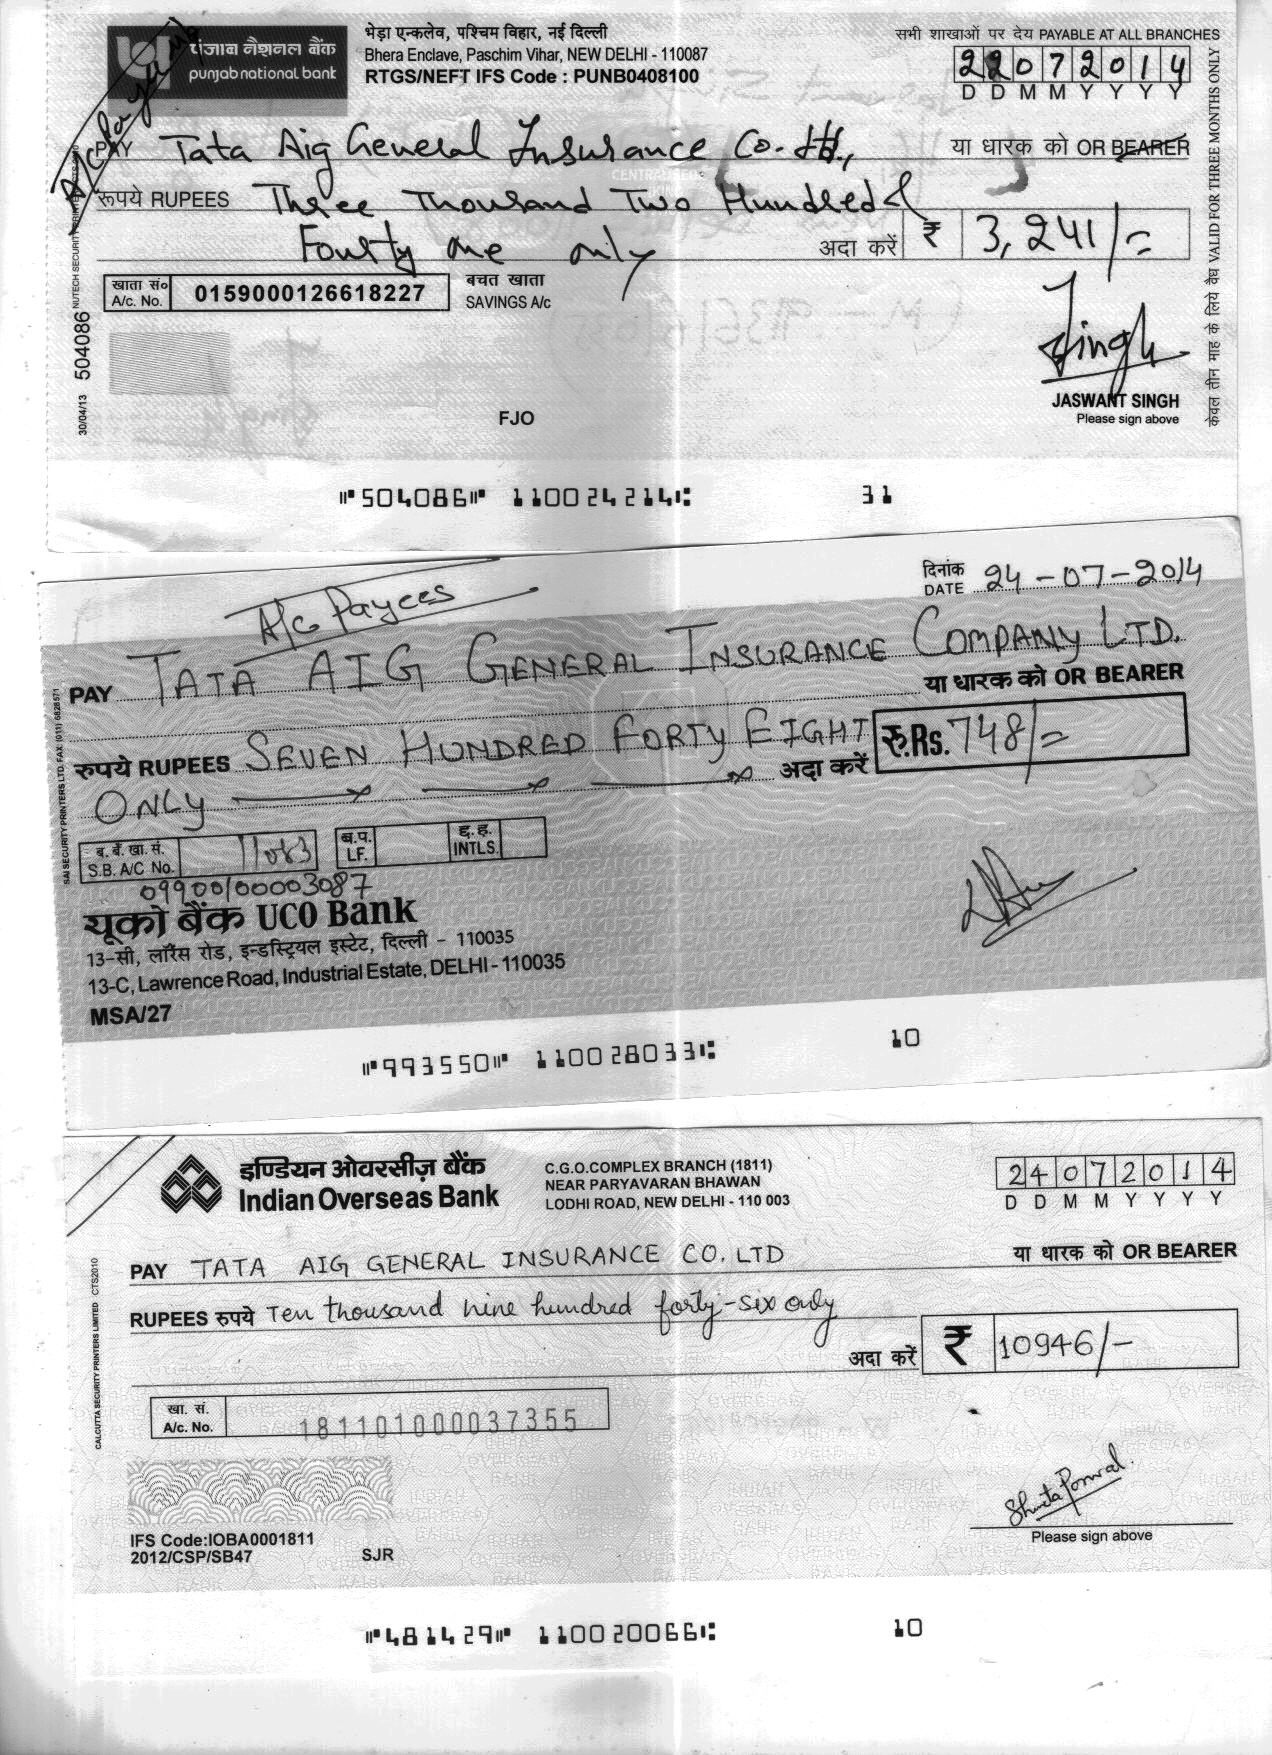 A/c Payee
पंजाब नैशनल बैंक
punjab national bank
भेड़ा एन्कलेव, पश्चिम विहार, नई दिल्ली
Bhera Enclave, Paschim Vihar, NEW DELHI - 110087
RTGS/NEFT IFS Code : PUNB0408100
सभी शाखाओं पर देय PAYABLE AT ALL BRANCHES
22072014
D D M M Y Y Y Y
PAY Tata Aig General Insurance Co. Ltd., या धारक को OR BEARER
रूपये RUPEES Three Thousand Two Hundred &
Fourty one only अदा करें ₹ 3,241/=
खाता सं०
A/c. No. 0159000126618227
बचत खाता
SAVINGS A/c
Singh
JASWANT SINGH
Please sign above
FJO
30/04/13 504086
केवल तीन माह के लिये वैध VALID FOR THREE MONTHS ONLY
"504086" 110024214: 31
A/c Payees
दिनांक
DATE 24-07-2014
PAY TATA AIG GENERAL INSURANCE COMPANY LTD.
या धारक को OR BEARER
रुपये RUPEES SEVEN HUNDRED FORTY EIGHT रु.Rs. 748/=
ONLY अदा करें
ब. बैं. खा. सं.
S.B. A/C No. 11083
ब.प.
LF.
ह.ह.
INTLS.
09900100003087
यूको बैंक UCO Bank
13-सी, लॉरेंस रोड, इन्डस्ट्रियल इस्टेट, दिल्ली - 110035
13-C, Lawrence Road, Industrial Estate, DELHI - 110035
MSA/27
SAI SECURITY PRINTERS LTD.
"993550" 110028033: 10
इण्डियन ओवरसीज़ बैंक
Indian Overseas Bank
C.G.O.COMPLEX BRANCH (1811)
NEAR PARYAVARAN BHAWAN
LODHI ROAD, NEW DELHI - 110 003
24072014
D D M M Y Y Y Y
PAY TATA AIG GENERAL INSURANCE CO. LTD या धारक को OR BEARER
RUPEES रुपये Ten thousand nine hundred forty-six only
अदा करें ₹ 10946/-
खा. सं.
A/c. No. 181101000037355
CALCUTTA SECURITY PRINTERS LIMITED CTS2010
Shweta Porwal.
Please sign above
IFS Code:IOBA0001811
2012/CSP/SB47
SJR
"481429" 110020066: 10